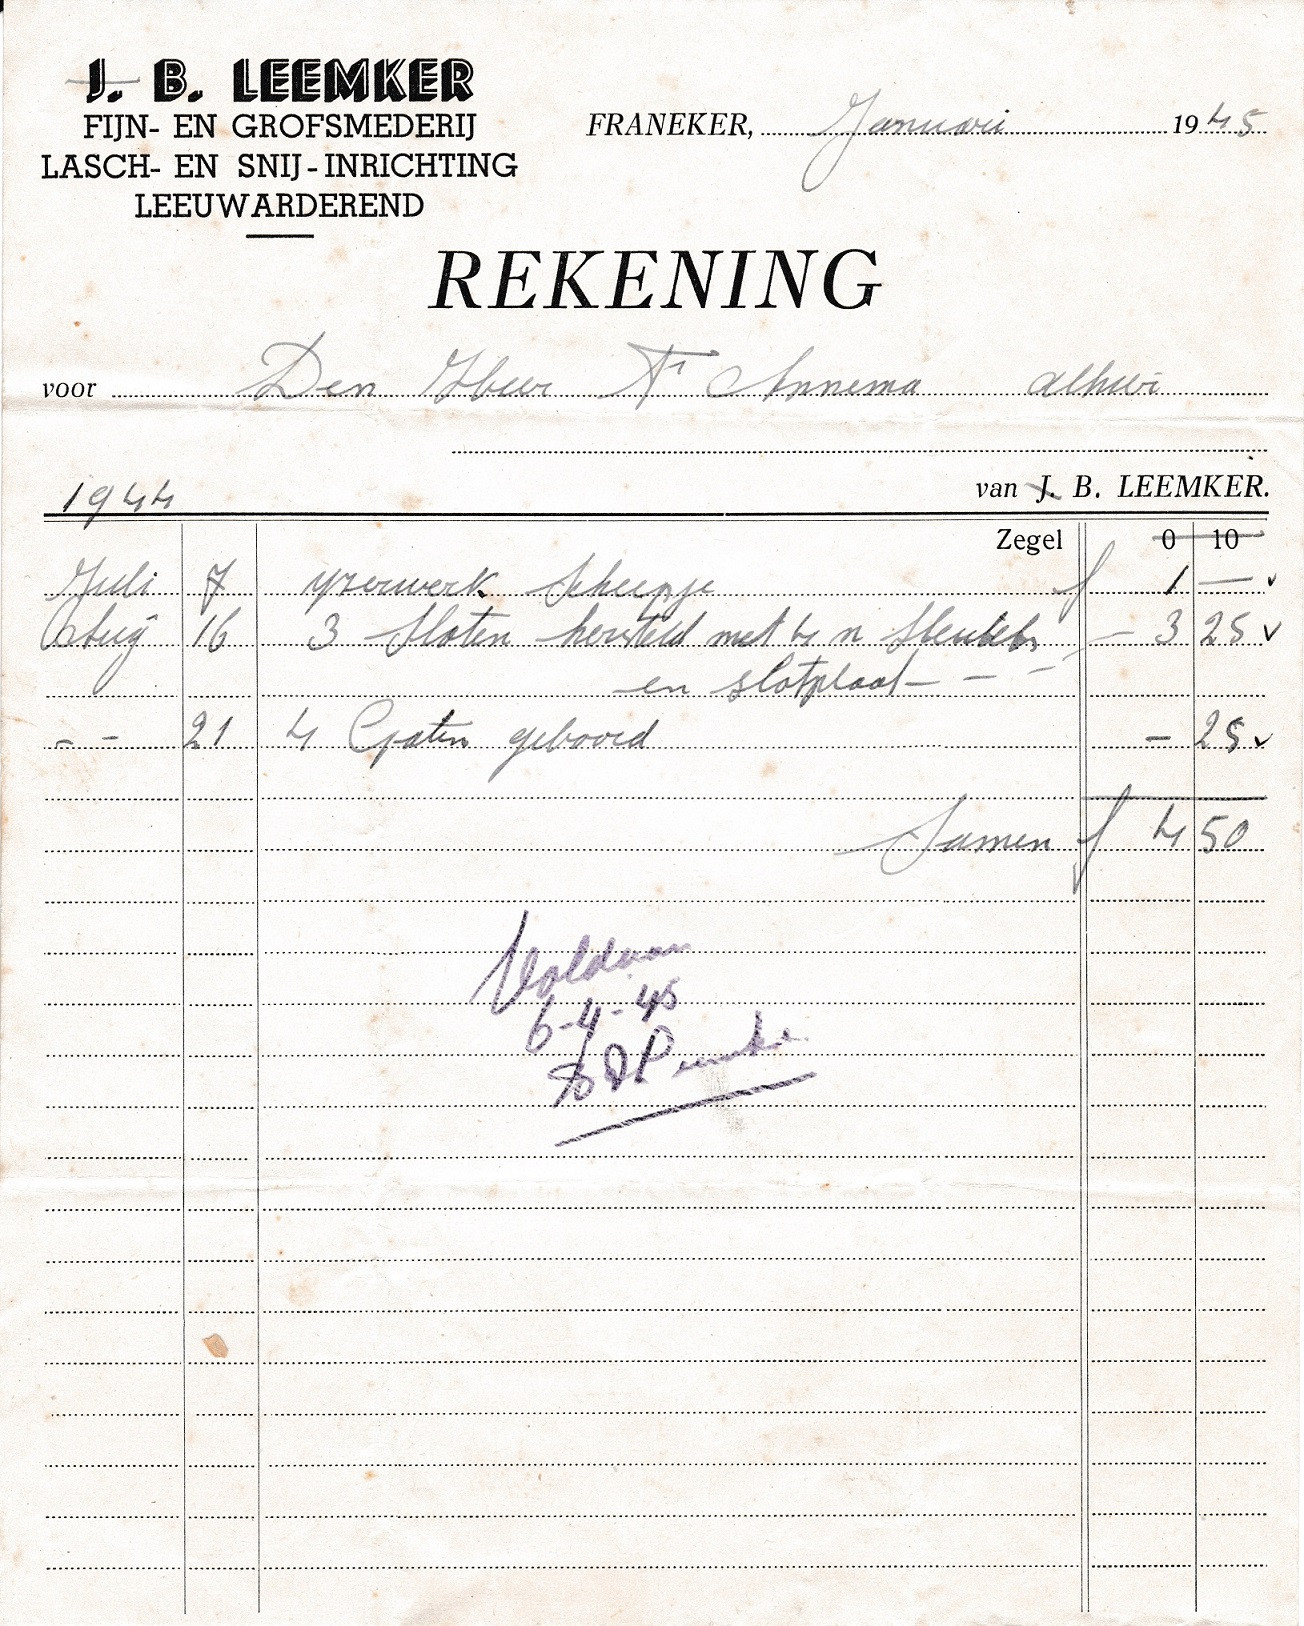 J. B. LEEMKER
FIJN- EN GROFSMEDERIJ
LASCH- EN SNIJ-INRICHTING
LEEUWARDEREND
FRANEKER, Januari 1945
REKENING
voor Den Heer Annema alhier
1944 van J. B. LEEMKER.
Zegel 0 10
Juli 7 yzerwerk scheepje f 1 —
Aug 16 3 sloten hersteld met 4 n sleutels - 3 25
en slotplaat - - -
- - 21 4 Gaten geboord - 25
Samen f 4 50
Voldaan
6-4-45